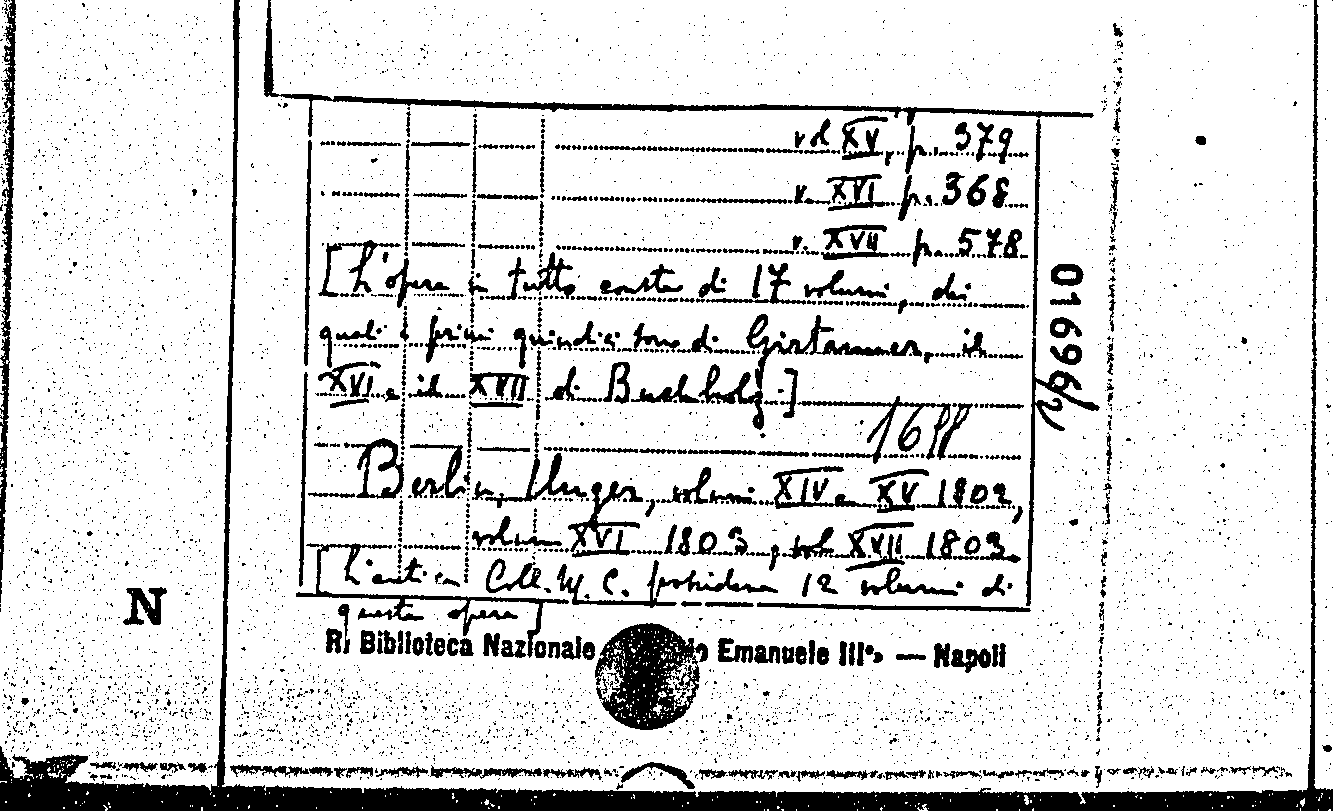 vol XV, p. 379
v. XVI p. 368
v. XVII p. 578
[L'opera in tutto consta di 17 volumi, dei
quali i primi quindici sono di Girtanner, il
XVI e il XVII di Buchholz.]
16
Berlin, Unger, volumi XIV e XV 1802,
volume XVI 1803, vol XVII 1803.
[L'antica Coll. M. C. possedeva 12 volumi di
questa opera]
R. Biblioteca Nazionale Emanuele III°» — Napoli
N
01696/2